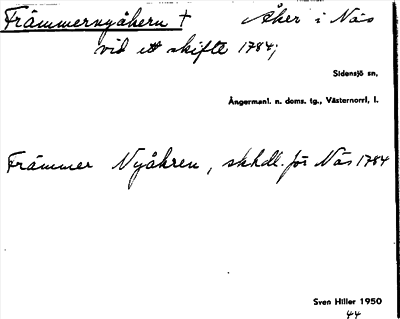 Främmernyåkern † Åker i Näs
vid ett skifte 1784;
Sidensjö sn,
Ångermanl. n. doms. tg., Västernorrl, l.
Främmer Nyåkren, skhdl. för Näs 1784
Sven Hiller 1950
44